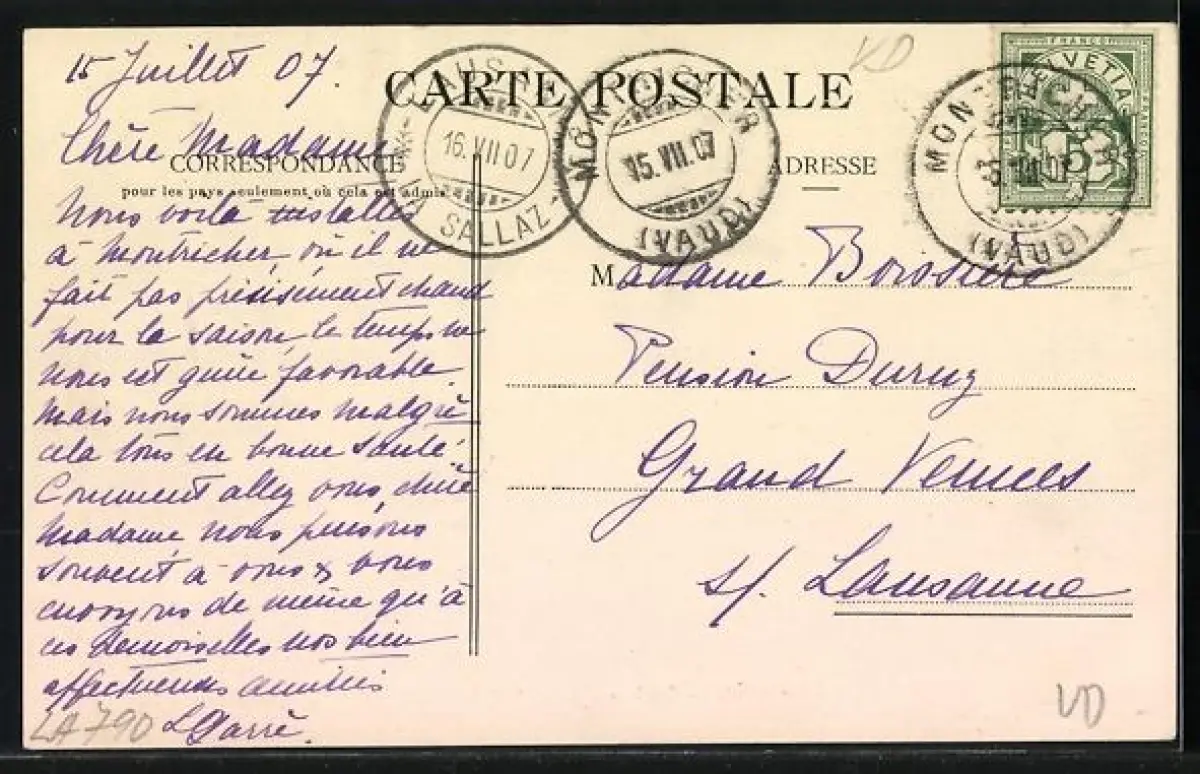 15 Juillet 07.
CARTE POSTALE
CORRESPONDANCE
pour les pays seulement où cela est admis
ADRESSE
Chère Madame
Nous voilà installés
à Montricher, où il ne
fait pas précisément chaud
pour la saison, le temps ne
nous est guère favorable.
Mais nous sommes malgré
cela tous en bonne santé.
Comment allez vous, chère
Madame, nous pensons
souvent à vous & vous
envoyons de même qu'à
ces Demoiselles nos bien
affectueuses amitiés
LGarré.
Madame Boissière
Pension Duruz
Grand Vennes
s/. Lausanne
LAUSANNE
16.VII 07
LA SALLAZ
MONTRICHER
15.VII.07
(VAUD)
MONTRICHER
15.VII.07
(VAUD)
FRANCO
HELVETIA
5
VD
VD
LA 790